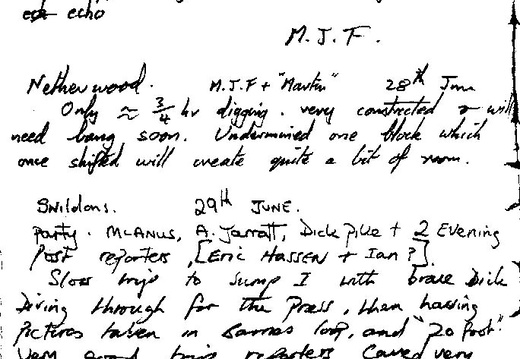 echo
M.J.F.
Netherwood. M.J.F + "Martin" 28th June
Only ≈ 3/4 hr digging. very constricted & will
need bang soon. Undermined one block which
once shifted will create quite a bit of room.
Swildons. 29th JUNE.
Party. McAnus, A. Jarratt, Dick Pike + 2 Evening
Post reporters, [Eric Hassen + Ian?].
Slow trip to Sump I with brave Dick
Diving through for the Press, then having
Pictures taken in Barnes loop, and "20 Foot".
Very good trip reporters caved very